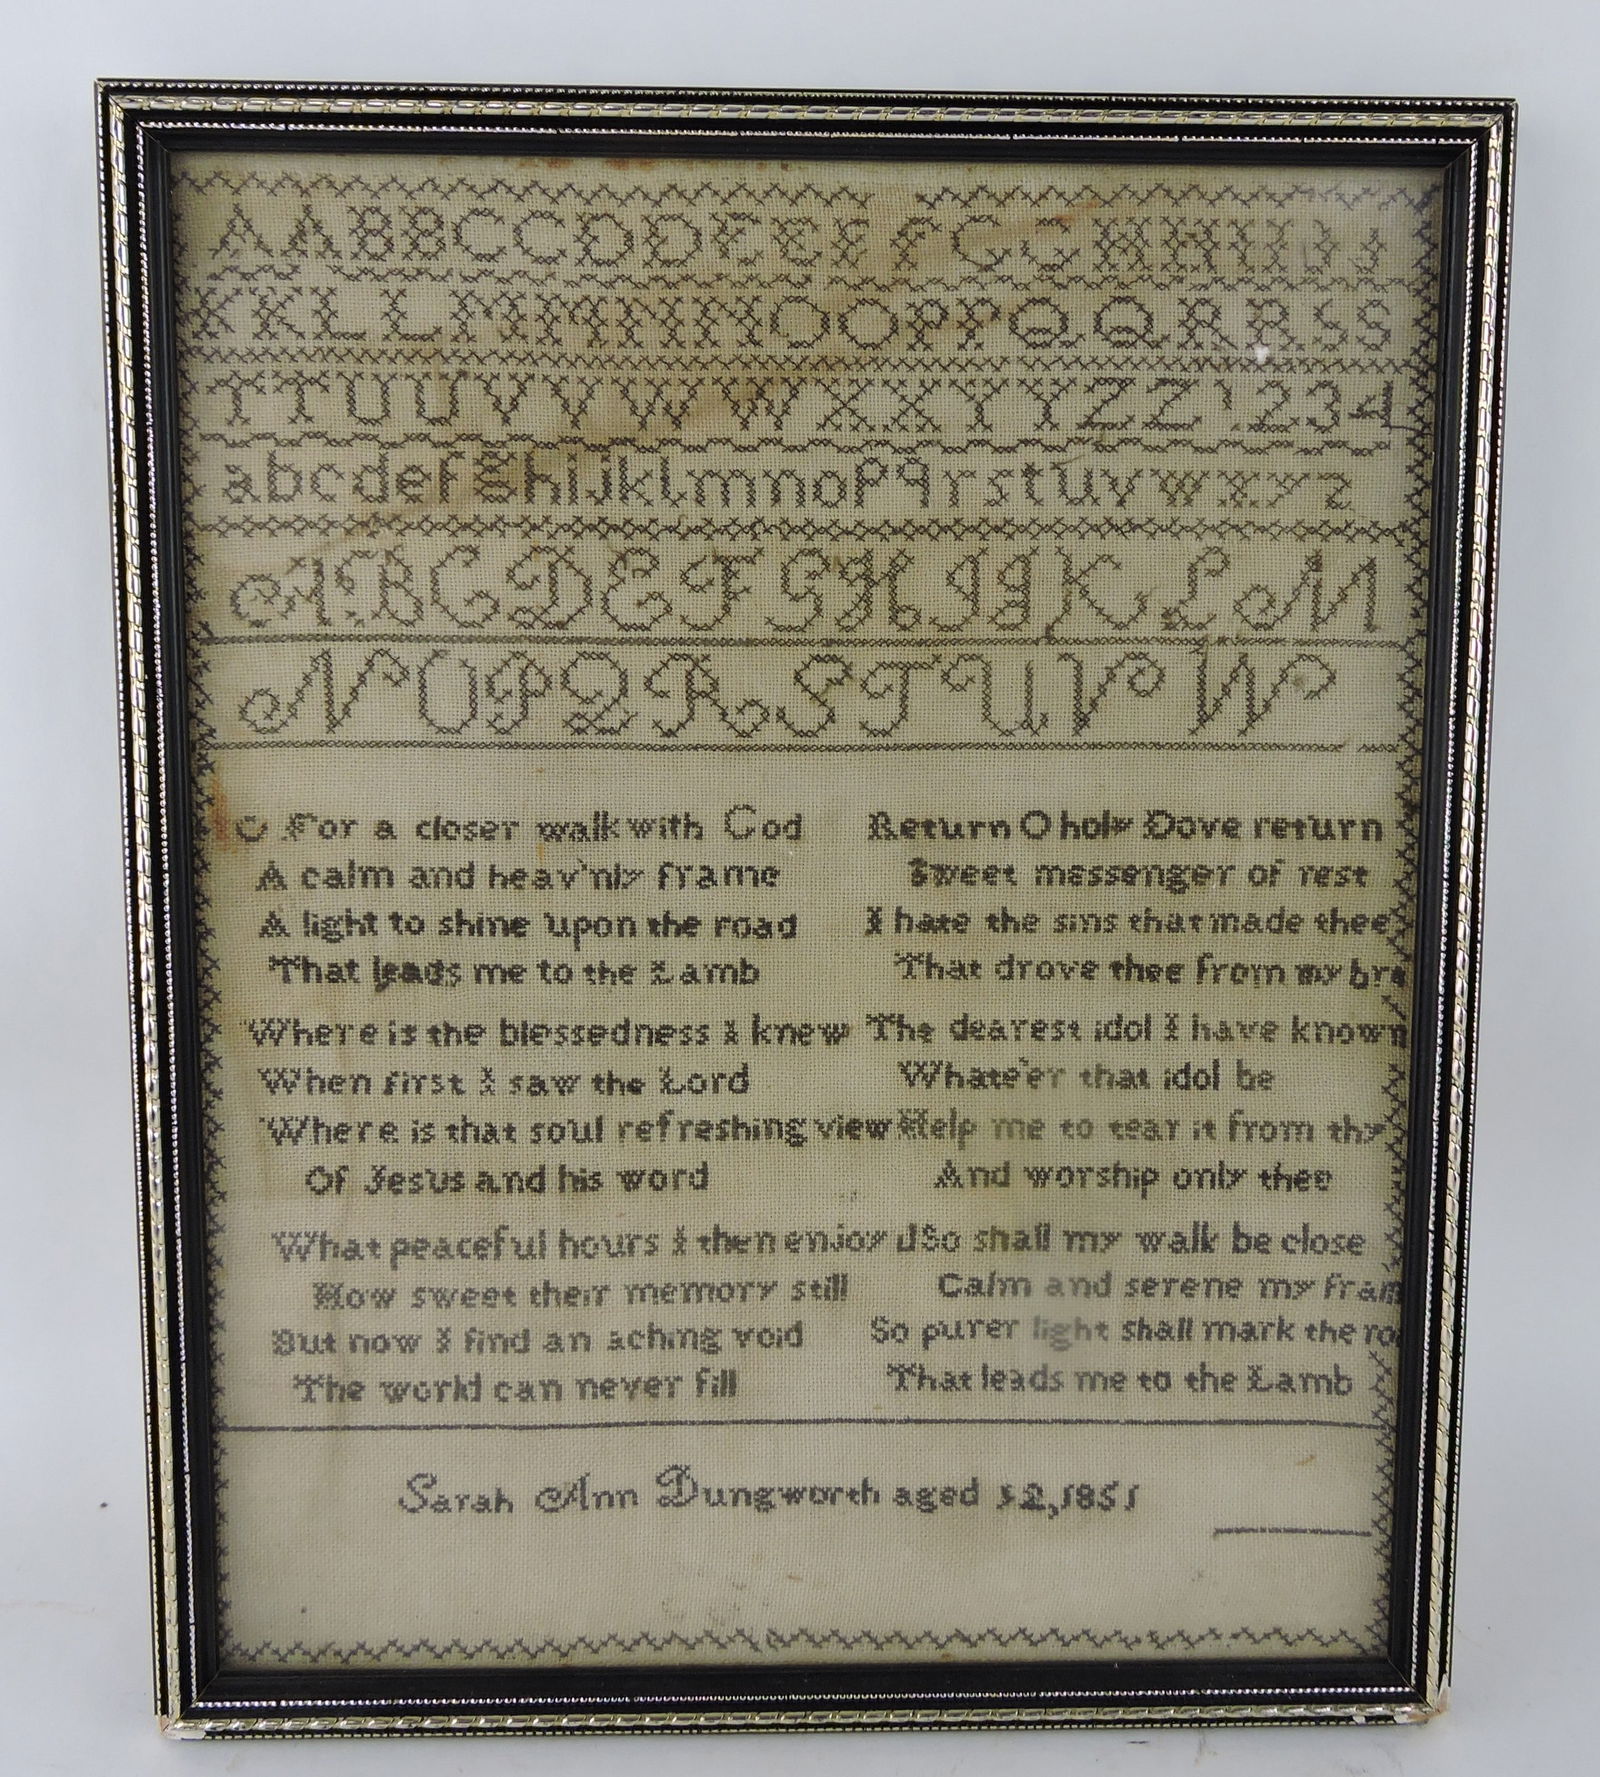 AABBCCDDEEFFGGHHIIJJ
KKLLMMNNOOPPQQRRSS
TTUUVVWWXXYYZZ1234
abcdefghijklmnopqrstuvwxyz
ABCDEFGHIJKLM
NOPQRSTUVW
O For a closer walk with God
A calm and heav'nly frame
A light to shine upon the road
That leads me to the Lamb
Where is the blessedness I knew
When first I saw the Lord
Where is that soul refreshing view
Of Jesus and his word
What peaceful hours I then enjoy'd
How sweet their memory still
But now I find an aching void
The world can never fill
Return O holy Dove return
Sweet messenger of rest
I hate the sins that made thee
That drove thee from my bre
The dearest idol I have known
Whate'er that idol be
Help me to tear it from thy
And worship only thee
So shall my walk be close
Calm and serene my fram
So purer light shall mark the roa
That leads me to the Lamb
Sarah Ann Dungworth aged 12,1851